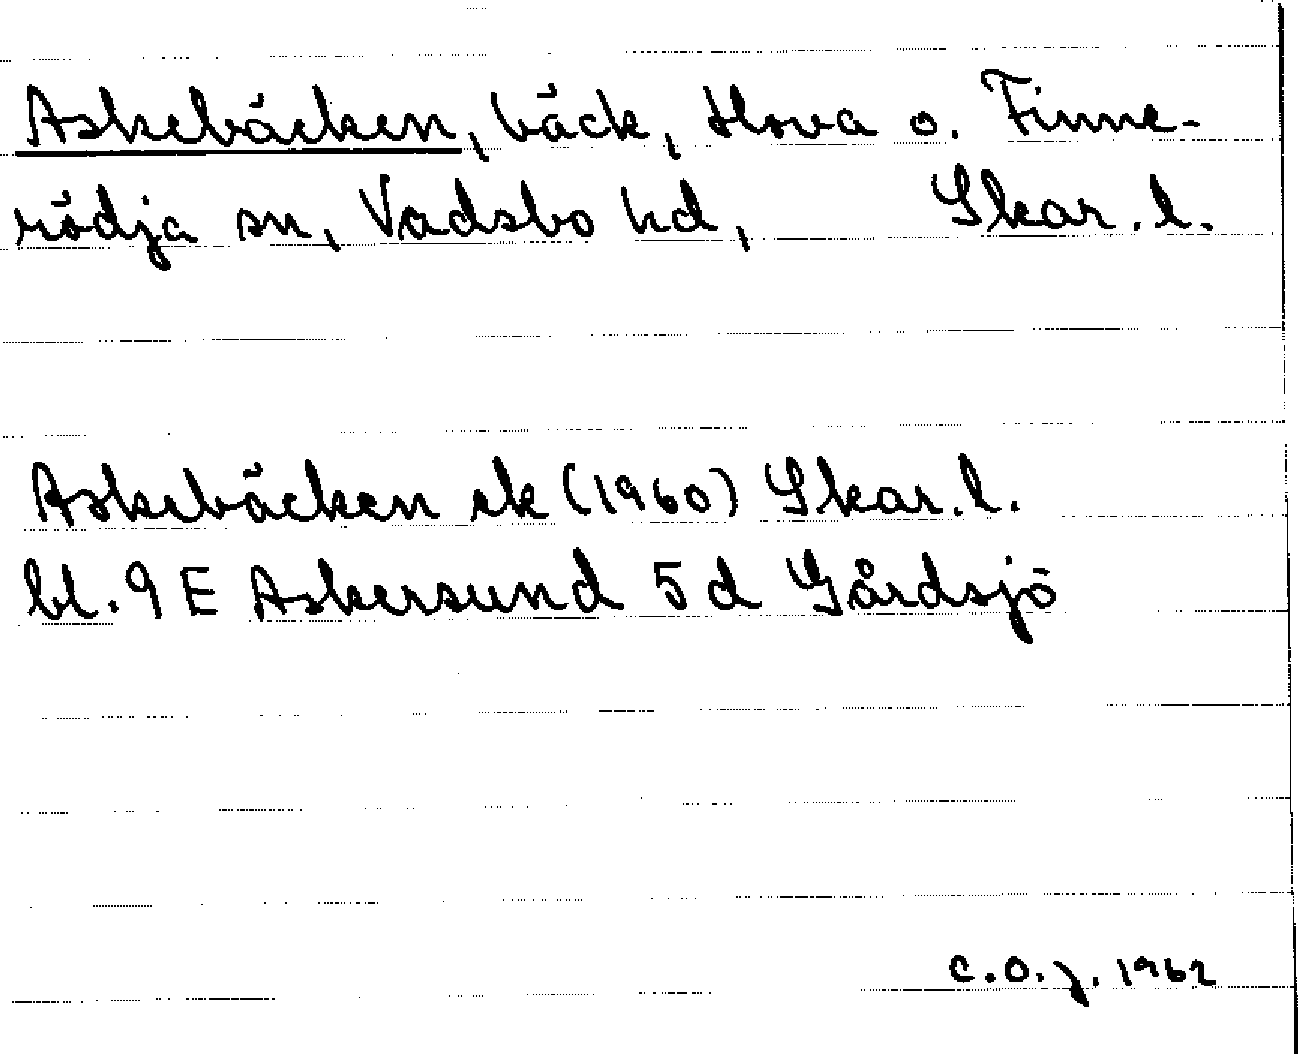 Askebäcken, bäck, Hova o. Finne-
rödja sn, Vadsbo hd, Skar. l.
Askebäcken ek (1960) Skar. l.
bl. 9 E Askersund 5 d Gårdsjö
C.O.J. 1962